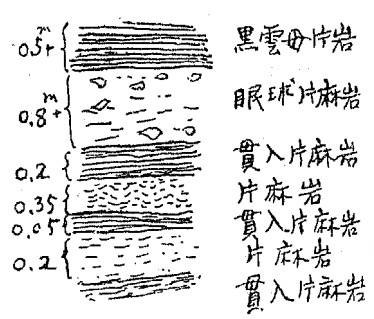 0.5+ m 黒雲母片岩
0.8+ m 眼球片麻岩
0.2 貫入片麻岩
0.35 片麻岩
0.05 貫入片麻岩
0.2 片麻岩
貫入片麻岩